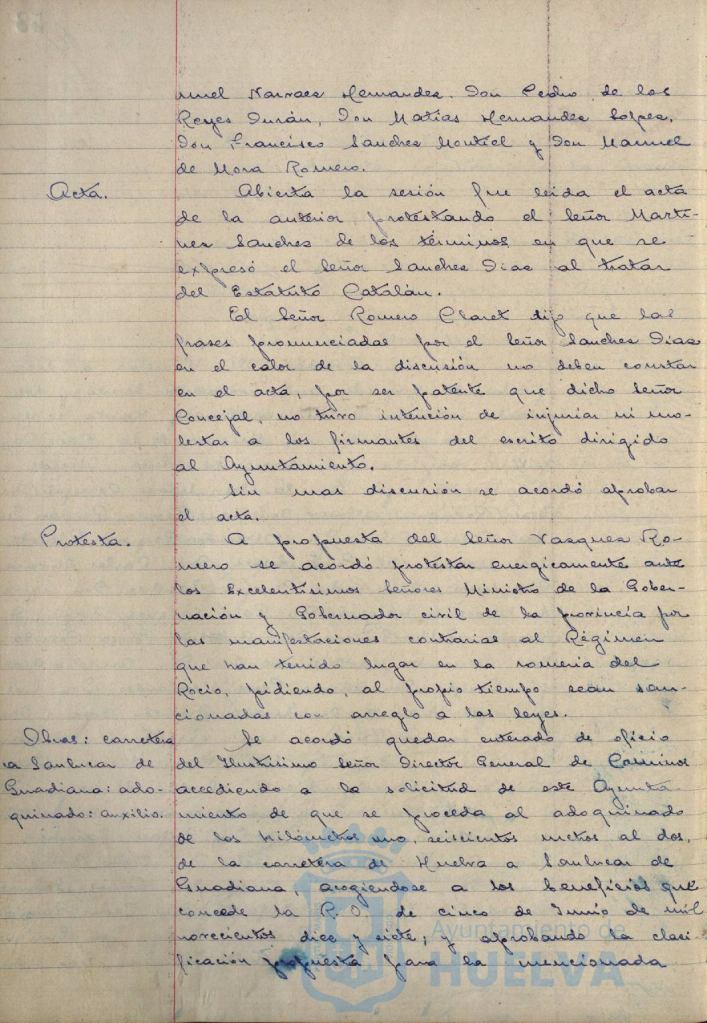 nuel Narvaez Hernandez. Don Pedro de los
Reyes Durán, Don Matías Hernandez Lopez,
Don Francisco Sanchez Montiel y Don Manuel
de Mora Romero.
Acta.
Abierta la sesión fue leida el acta
de la anterior protestando el Señor Marti-
nez Sanchez de los términos en que se
expresó el Señor Sanchez Diaz al tratar
del Estatuto Catalán.
El Señor Romero Claret dijo que las
frases pronunciadas por el Señor Sanchez Diaz
en el calor de la discusión no deben constar
en el acta, por ser patente que dicho Señor
Concejal, no tuvo intención de injuriar ni mo-
lestar a los firmantes del escrito dirigido
al Ayuntamiento.
Sin mas discusión se acordó aprobar
el acta.
Protesta.
A propuesta del Señor Vazquez Ro-
mero se acordó protestar energicamente ante
los Excelentisimos Señores Ministro de la Gober-
nación y Gobernador civil de la provincia por
las manifestaciones contrarias al Régimen
que han tenido lugar en la romeria del
Rocio, pidiendo, al propio tiempo sean san-
cionadas con arreglo a las leyes.
Obras: carretera
a Sanlucar de
Guadiana: ado-
quinado: auxilio.
Se acordó quedar enterado de oficio
del Ilustrisimo Señor Director General de Caminos
accediendo a la solicitud de este Ayunta-
miento de que se proceda al adoquinado
de los kilómetros uno, seiscientos metros al dos,
de la carretera de Huelva a Sanlucar de
Guadiana, acogiendose a los beneficios que
concede la R. O. de cinco de Junio de mil
novecientos diez y siete; y aprobando la clasi-
ficación propuesta para la mencionada
Ayuntamiento de
HUELVA